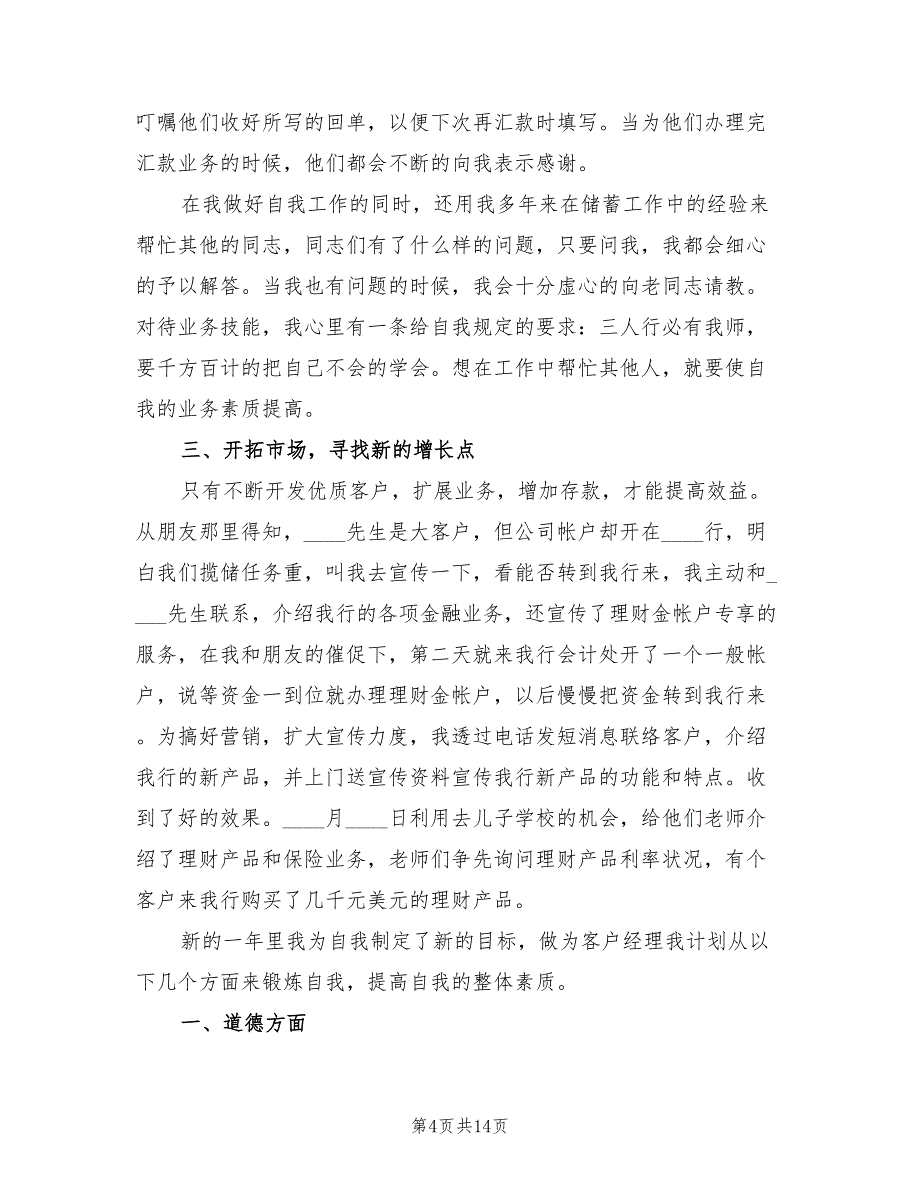 叮嘱他们收好所写的回单，以便下次再汇款时填写。当为他们办理完
汇款业务的时候，他们都会不断的向我表示感谢。
在我做好自我工作的同时，还用我多年来在储蓄工作中的经验来
帮忙其他的同志，同志们有了什么样的问题，只要问我，我都会细心
的予以解答。当我也有问题的时候，我会十分虚心的向老同志请教。
对待业务技能，我心里有一条给自我规定的要求：三人行必有我师，
要千方百计的把自己不会的学会。想在工作中帮忙其他人，就要使自
我的业务素质提高。
三、开拓市场，寻找新的增长点
只有不断开发优质客户，扩展业务，增加存款，才能提高效益。
从朋友那里得知，____先生是大客户，但公司帐户却开在____行，明
白我们揽储任务重，叫我去宣传一下，看能否转到我行来，我主动和_
___先生联系，介绍我行的各项金融业务，还宣传了理财金帐户专享的
服务，在我和朋友的催促下，第二天就来我行会计处开了一个一般帐
户，说等资金一到位就办理理财金帐户，以后慢慢把资金转到我行来
。为搞好营销，扩大宣传力度，我透过电话发短消息联络客户，介绍
我行的新产品，并上门送宣传资料宣传我行新产品的功能和特点。收
到了好的效果。____月____日利用去儿子学校的机会，给他们老师介
绍了理财产品和保险业务，老师们争先询问理财产品利率状况，有个
客户来我行购买了几千元美元的理财产品。
新的一年里我为自我制定了新的目标，做为客户经理我计划从以
下几个方面来锻炼自我，提高自我的整体素质。
一、道德方面
第4页共14页